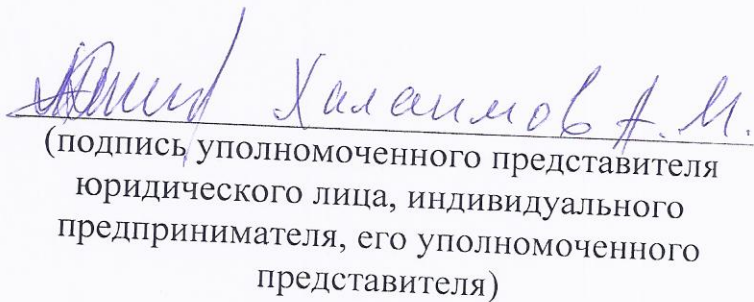 Халаимов А. М.
(подпись уполномоченного представителя
юридического лица, индивидуального
предпринимателя, его уполномоченного
представителя)